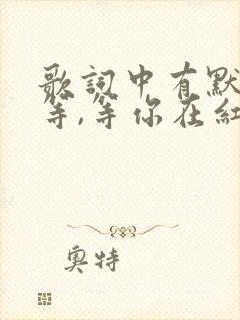 歌詞中有默
等,等你在紅
奧特